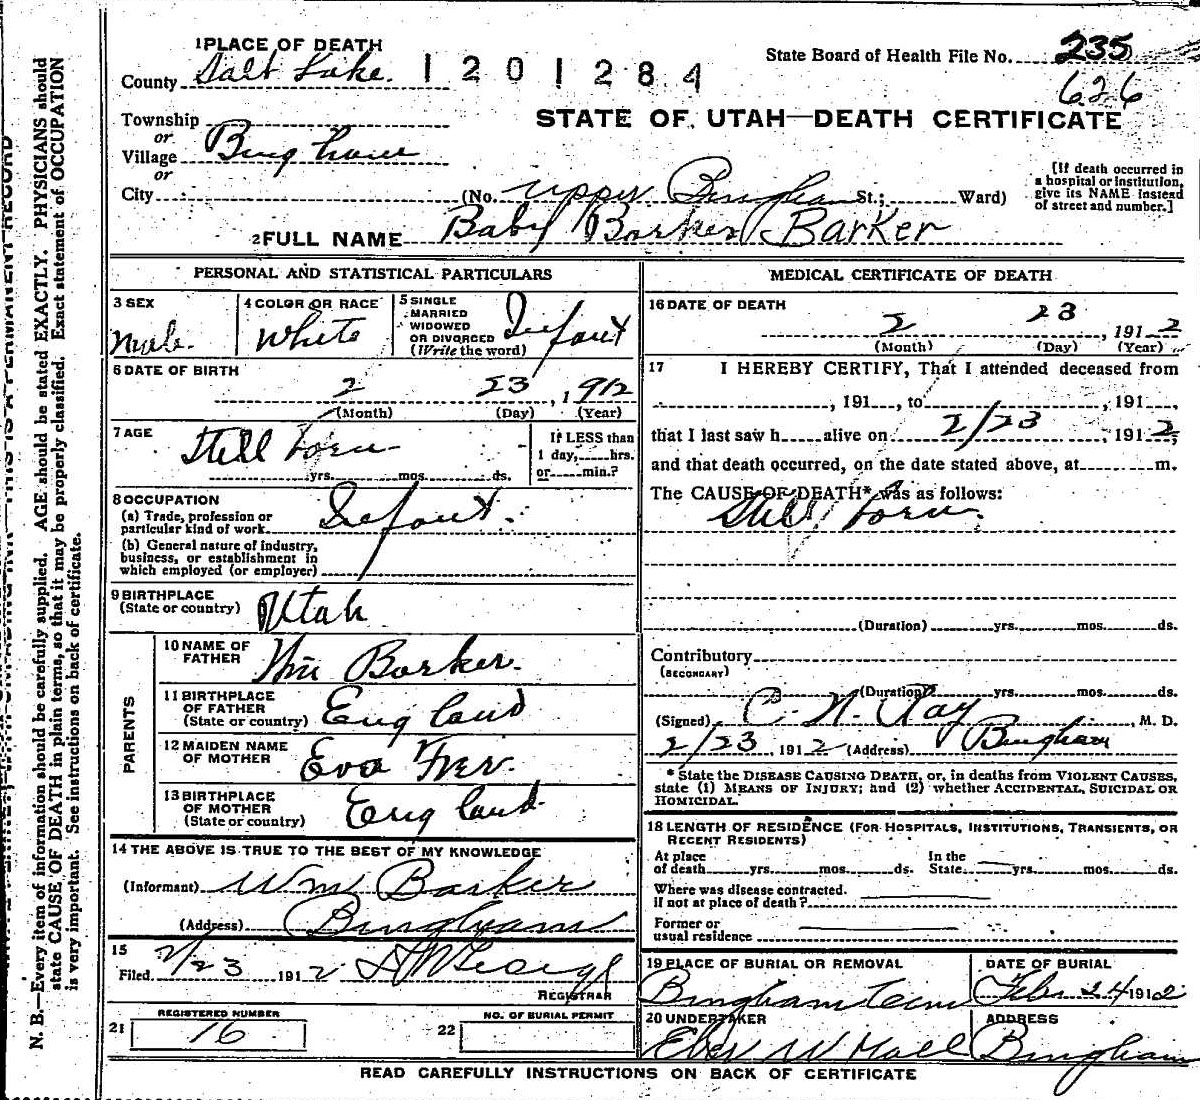 1 PLACE OF DEATH
County Salt Lake. 1201284
State Board of Health File No. 235
626
STATE OF UTAH—DEATH CERTIFICATE
Township
or
Village Bingham
or
City
(No. Upper Bingham St.; Ward)
[If death occurred in
a hospital or institution,
give its NAME instead
of street and number.]
2 FULL NAME Baby Barker Barker
PERSONAL AND STATISTICAL PARTICULARS
3 SEX
Male.
4 COLOR OR RACE
White
5 SINGLE
MARRIED
WIDOWED
OR DIVORCED
(Write the word)
Infant
6 DATE OF BIRTH
2 23, 1912
(Month) (Day) (Year)
7 AGE
Still born
yrs. mos. ds.
If LESS than
1 day, hrs.
or min.?
8 OCCUPATION
(a) Trade, profession or
particular kind of work
Infant.
(b) General nature of industry,
business, or establishment in
which employed (or employer)
9 BIRTHPLACE
(State or country) Utah
PARENTS
10 NAME OF
FATHER
Wm Barker.
11 BIRTHPLACE
OF FATHER
(State or country) England
12 MAIDEN NAME
OF MOTHER
Eva
13 BIRTHPLACE
OF MOTHER
(State or country) England
14 THE ABOVE IS TRUE TO THE BEST OF MY KNOWLEDGE
(Informant) Wm Barker
(Address) Bingham
15
Filed 2/23 1912
REGISTRAR
REGISTERED NUMBER
21 16
NO. OF BURIAL PERMIT
22
MEDICAL CERTIFICATE OF DEATH
16 DATE OF DEATH
2 23, 1912
(Month) (Day) (Year)
17 I HEREBY CERTIFY, That I attended deceased from
, 191 , to , 191 ,
that I last saw h alive on 2/23, 1912,
and that death occurred, on the date stated above, at m.
The CAUSE OF DEATH* was as follows:
Still born.
(Duration) yrs. mos. ds.
Contributory
(SECONDARY)
(Duration) yrs. mos. ds.
(Signed) C. N. Ray, M. D.
2/23, 1912 (Address) Bingham
* State the DISEASE CAUSING DEATH, or, in deaths from VIOLENT CAUSES,
state (1) MEANS OF INJURY; and (2) whether ACCIDENTAL, SUICIDAL OR
HOMICIDAL.
18 LENGTH OF RESIDENCE (FOR HOSPITALS, INSTITUTIONS, TRANSIENTS, OR
RECENT RESIDENTS)
At place
of death yrs. mos. ds.
In the
State yrs. mos. ds.
Where was disease contracted.
if not at place of death?
Former or
usual residence
19 PLACE OF BURIAL OR REMOVAL
Bingham Cem
DATE OF BURIAL
Feb 24 1912
20 UNDERTAKER
Eber W Hall
ADDRESS
Bingham
READ CAREFULLY INSTRUCTIONS ON BACK OF CERTIFICATE
N. B.—Every item of information should be carefully supplied. AGE should be stated EXACTLY. PHYSICIANS should
state CAUSE OF DEATH in plain terms, so that it may be properly classified. Exact statement of OCCUPATION
is very important. See instructions on back of certificate.